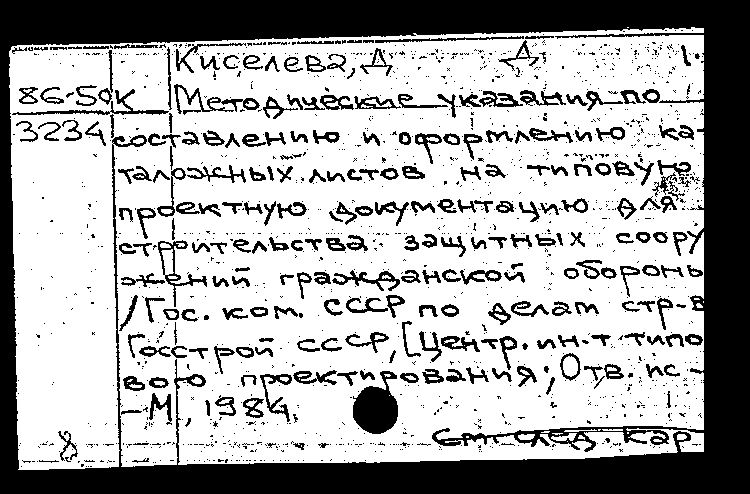 Киселева, Д. Д. 1.
86-50к Методические указания по
3234 составлению и оформлению ка-
таложных листов на типовую
проектную документацию для
строительства защитных соору
жений гражданской оборонь
/Гос. ком. СССР по делам стр-в
Госстрой СССР, [Центр. ин-т типо
вого проектирования; Отв. ис-
-М, 1984.
См. след. кар
8